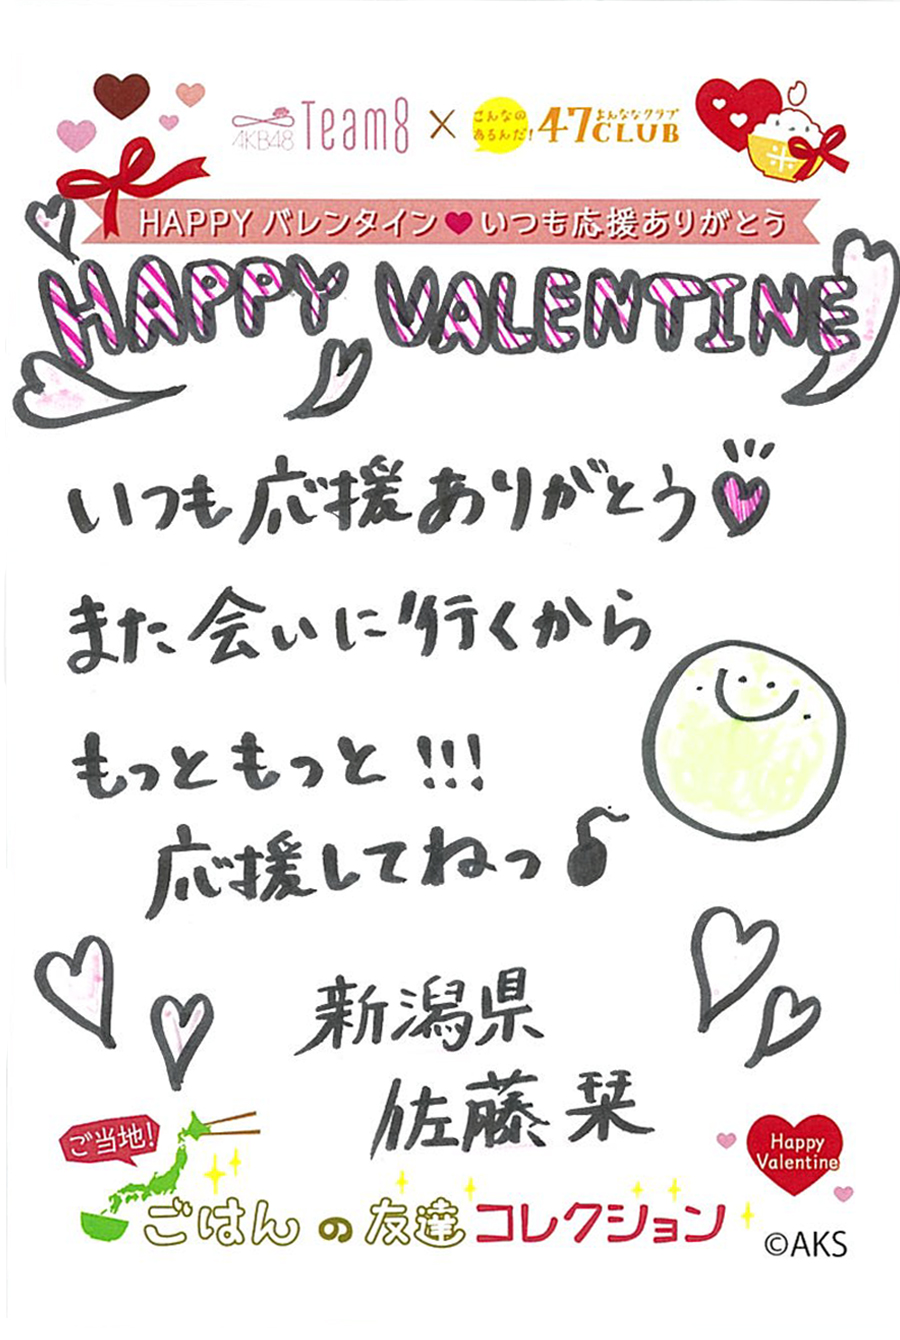 AKB48 Team8 × こんなのあるんだ! 47CLUB よんななクラブ
HAPPY バレンタイン♥いつも応援ありがとう
HAPPY VALENTINE
いつも応援ありがとう♡
また会いに行くから
もっともっと!!!
応援してねっ♪
新潟県
佐藤栞
ご当地!
ごはんの友達コレクション
Happy
Valentine
©AKS